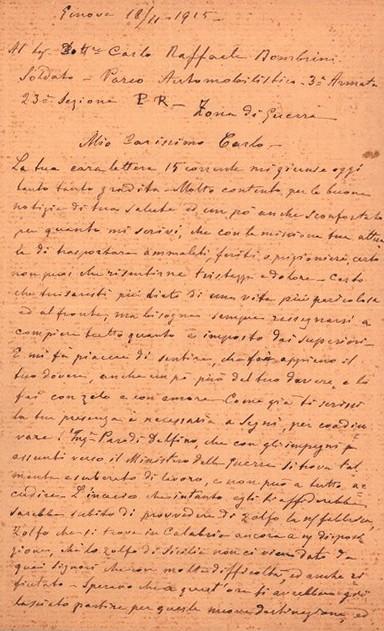 Genova 18/11-1915-
Al Sig. Dott. Carlo Raffaele Bombrini
Soldato - Parco Automobilistico - 3ª Armata
23ª Sezione P R - Zona di Guerra
Mio Carissimo Carlo -
La tua cara lettera 15 corrente mi giunse oggi
tanto tanto gradita - Molto contento per le buone
notizie di tua salute ed un po' anche sconfortato
per quanto mi scrivi, che con la missione tua attua
le di trasportare ammalati, feriti, e prigionieri, certo
non puoi che risentirne tristezza e dolore - Certo
che saresti più lieto di una vita più pericolosa
ed al fronte, ma bisogna sempre rassegnarsi a
compiere tutto quanto è imposto dai superiori -
E mi fa piacere di sentire, che fai appieno il
tuo dovere, anche un po' più del tuo dovere, e lo
fai con zelo e con amore - Come già ti scrissi
la tua presenza è necessaria a Segni, per coadiu
vare l'Ing. Paredi Delfino, che con gli impegni
assunti verso il Ministro della Guerra si trova tal
mente esuberato di lavoro, e non può a tutto ac
cudire - L'incarico che intanto egli ti affiderebbe
sarebbe subito di provvedere di zolfo la fabbrica,
zolfo che si trova in Calabria ancora a disposi
zione, chè lo zolfo di Sicilia non ci vien dato da
quei signori che con molta difficoltà, ed anche ri
fiutato - Speravo che a quest'ora ti avrebbero già
lasciato partire per questa nuova destinazione, ed